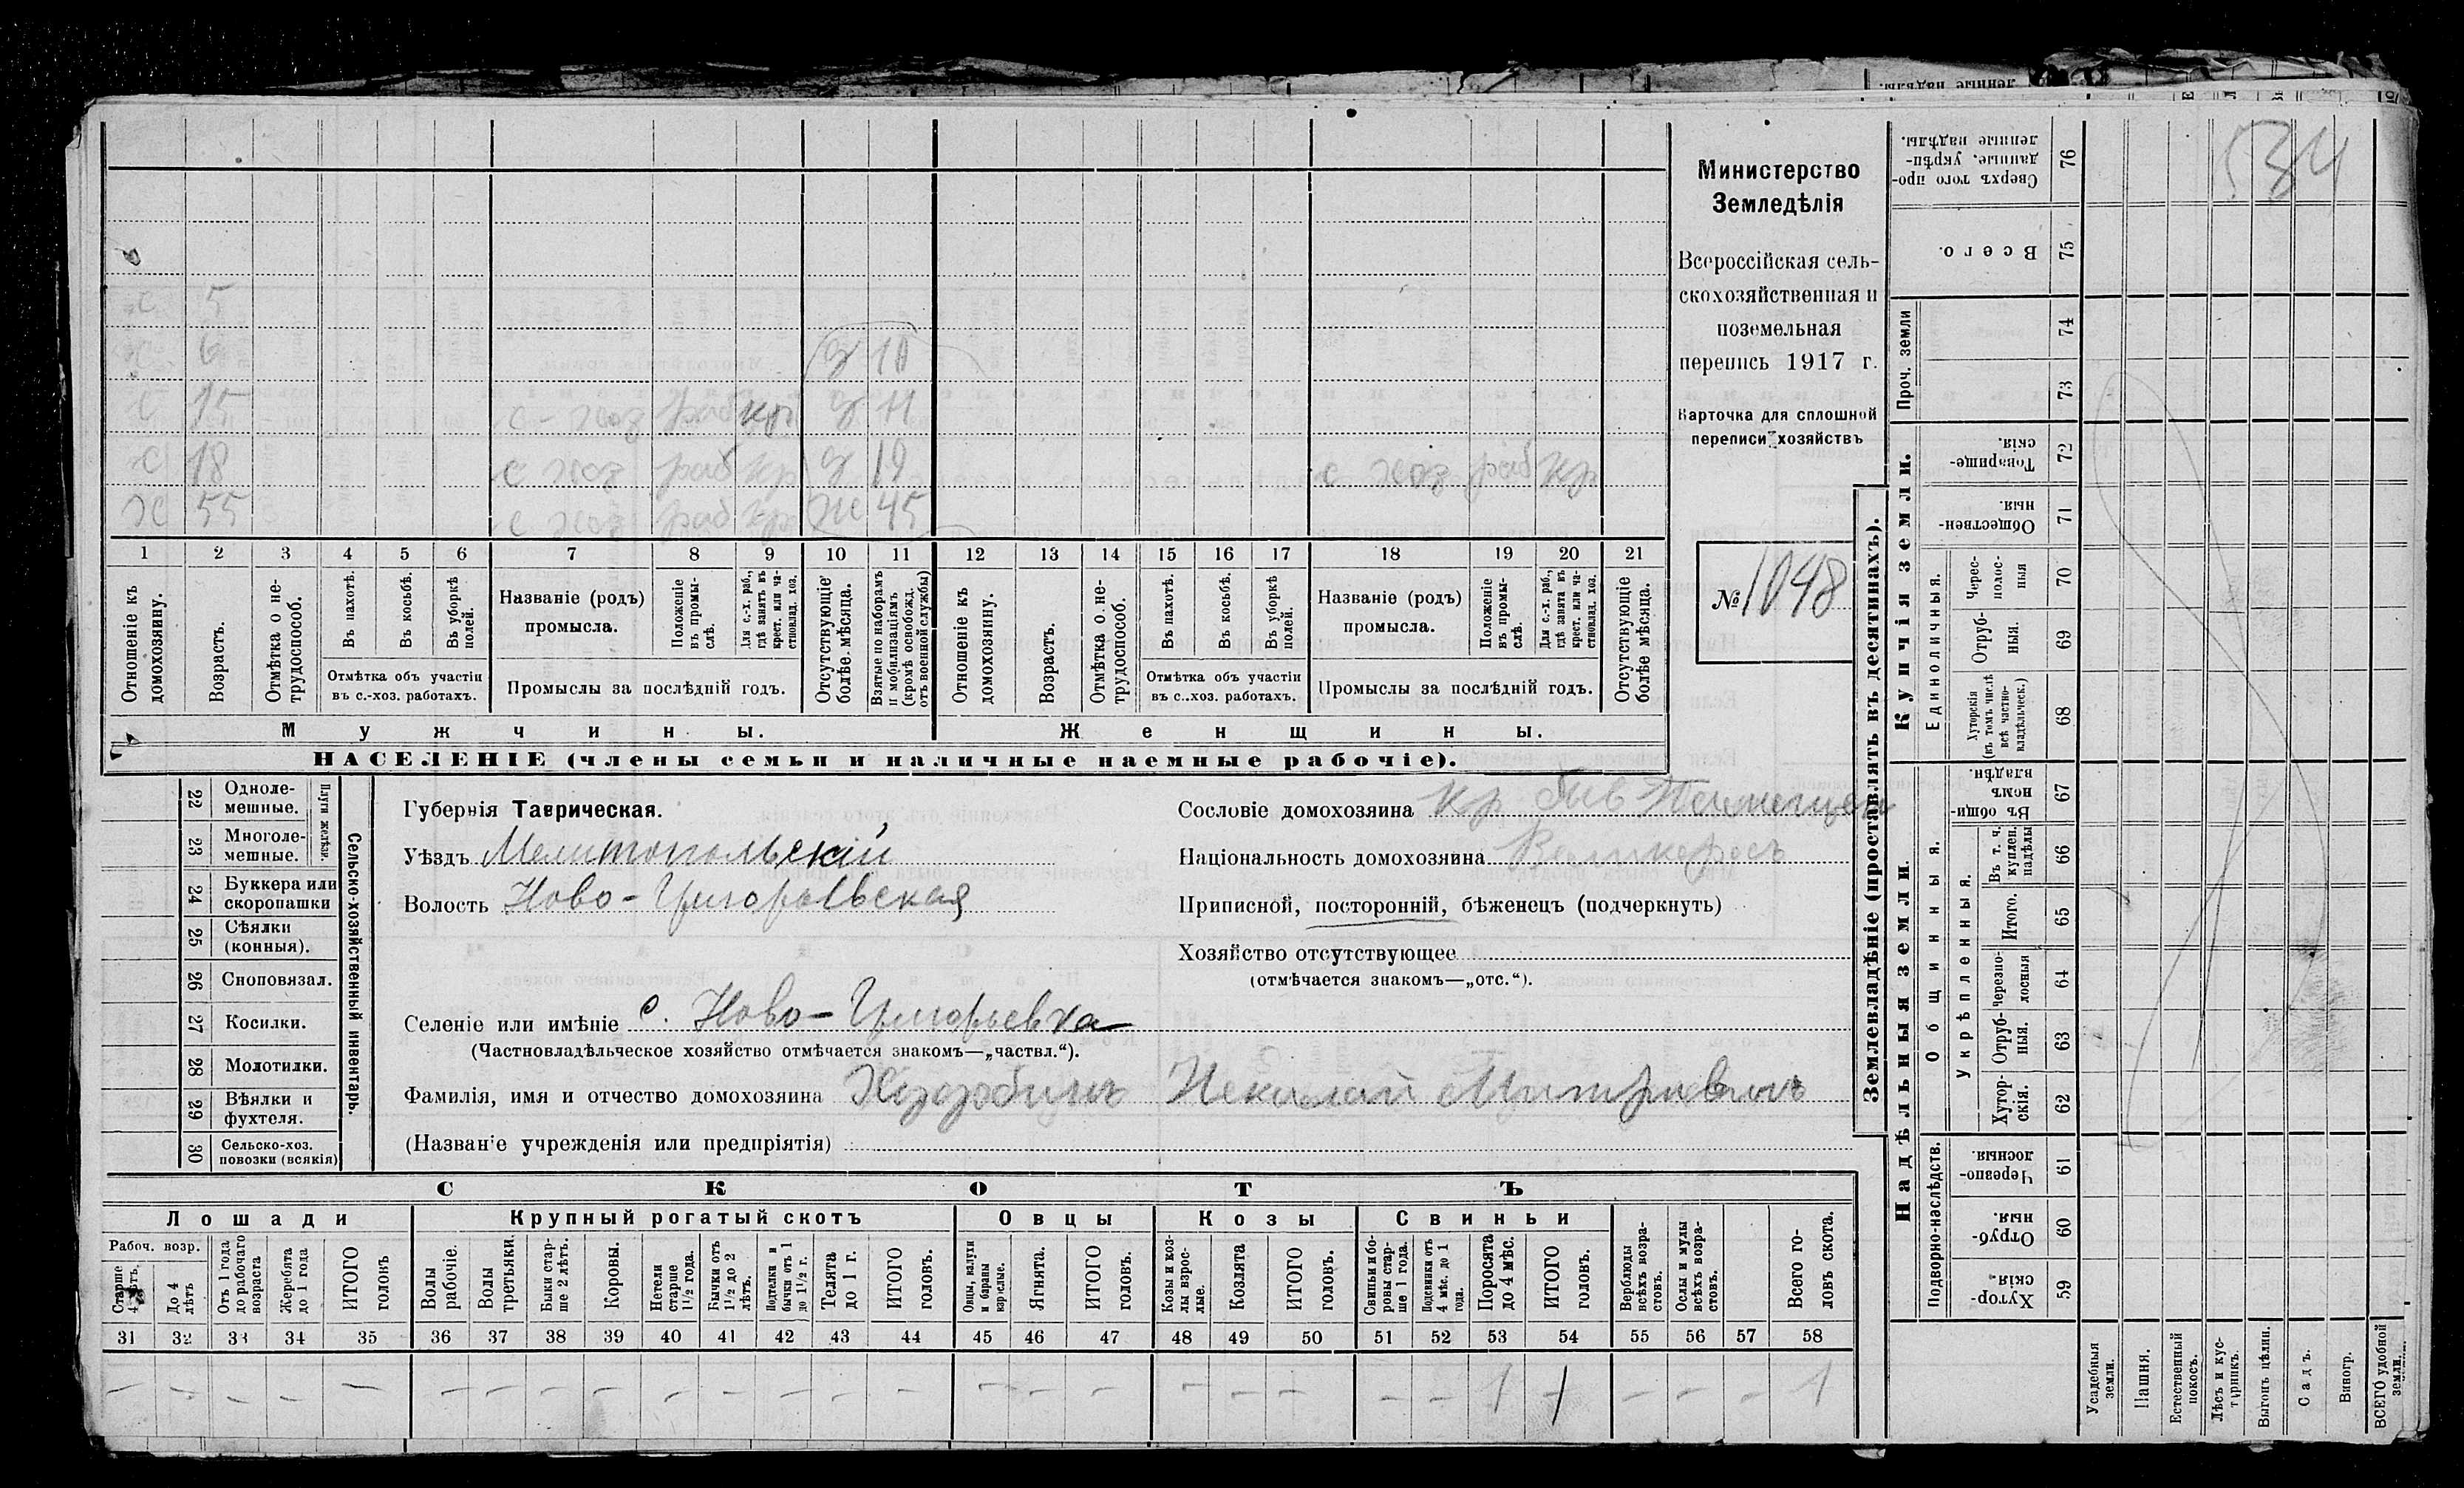 534
Министерство
Земледѣлія
Всероссійская сель-
скохозяйственная и
поземельная
перепись 1917 г.
Карточка для сплошной
переписи хозяйствъ
№ 1048
с 5
6
д 10
с 15 с-хоз раб кр д 11
с 18 с хоз раб кр д 19 с хоз раб кр
Х 55 с хоз раб кр Ж 45
1 2 3 4 5 6 7 8 9 10 11 12 13 14 15 16 17 18 19 20 21
Отношеніе къ домохозяину.
Возрастъ.
Отмѣтка о не-трудоспособ.
Въ пахотѣ.
Въ косьбѣ.
Въ уборкѣ полей.
Отмѣтка объ участіи
въ с.-хоз. работахъ.
Названіе (родъ)
промысла.
Положеніе въ промы-слѣ.
Для с.-х. раб., гдѣ занятъ въ крест. или ча-стновлад. хоз.
Промыслы за послѣдній годъ.
Отсутствующіе болѣе мѣсяца.
Взятые по наборамъ и мобилизаціямъ (кромѣ освобожд. отъ военной службы)
Отношеніе къ домохозяину.
Возрастъ.
Отмѣтка о не-трудоспособ.
Въ пахотѣ.
Въ косьбѣ.
Въ уборкѣ полей.
Отмѣтка объ участіи
въ с.-хоз. работахъ.
Названіе (родъ)
промысла.
Положеніе въ промы-слѣ.
Для с.-х. раб., гдѣ занята въ крест. или ча-стновлад. хоз.
Промыслы за послѣдній годъ.
Отсутствующіе болѣе мѣсяца.
Мужчины. Женщины.
НАСЕЛЕНІЕ (члены семьи и наличные наемные рабочіе).
Сельско-хозяйственный инвентарь.
Плуги желѣзн.
22 Одноле-мешные.
23 Многоле-мешные.
24 Буккера или скоропашки
25 Сѣялки (конныя).
26 Сноповязал.
27 Косилки.
28 Молотилки.
29 Вѣялки и фухтеля.
30 Сельско-хоз. повозки (всякія)
Губернія Таврическая.
Уѣздъ Мелитопольскій
Волость Ново-Григорьевская
Селеніе или имѣніе с. Ново-Григорьевка
(Частновладѣльческое хозяйство отмѣчается знакомъ—„частвл.“).
Фамилія, имя и отчество домохозяина Николай Дмитріевичъ
(Названіе учрежденія или предпріятія)
Сословіе домохозяина кр. быв
Національность домохозяина Великоросъ
Приписной, посторонній, бѣженецъ (подчеркнуть)
Хозяйство отсутствующее
(отмѣчается знакомъ—„отс.“).
СКОТЪ
Лошади Крупный рогатый скотъ Овцы Козы Свиньи
Рабоч. возр.
Старше 4 лѣтъ.
До 4 лѣтъ
Отъ 1 года до рабочаго возраста
Жеребята до 1 года
ИТОГО головъ
Волы рабочіе.
Волы третьяки.
Быки стар-ше 2 лѣтъ.
Коровы.
Нетели старше 1½ года.
Бычки отъ 1½ до 2 лѣтъ.
Подтелки и бычки отъ 1 до 1½ г.
Телята до 1 г.
ИТОГО головъ.
Овцы, валухи и бараны взрослые.
Ягнята.
ИТОГО головъ.
Козы и коз-лы взрос-лые.
Козлята
ИТОГО головъ.
Свиньи и бо-ровы стар-ше 1 года.
Подсвинки отъ 4 мѣс. до 1 года.
Поросята до 4 мѣс.
ИТОГО головъ.
Верблюды всѣхъ возра-стовъ.
Ослы и мулы всѣхъ возра-стовъ.
Всего го-ловъ скота.
31 32 33 34 35 36 37 38 39 40 41 42 43 44 45 46 47 48 49 50 51 52 53 54 55 56 57 58
– – – – – – – – – – – – – – – – – – – – – – 1 1 – – – 1
Землевладѣніе (проставлять въ десятинахъ).
Купчія земли.
Надѣльныя земли.
Сверхъ того про-данные, укрѣп-ленные надѣлы. 76
Всего. 75
Проч. земли 74
73
Товарище-скія. 72
Обществен-ныя. 71
Единоличныя.
Черес-полос-ныя 70
Отруб-ныя. 69
Хуторскія (въ томъ числѣ всѣ частно-владѣльческ.) 68
Общинныя.
Въ общи-номъ владѣн. 67
Укрѣпленныя.
Въ т. ч. куплен. надѣлы 66
Итого. 65
Черезпо-лосныя 64
Отруб-ныя. 63
Хутор-скія. 62
Подворно-наслѣдств.
Черезпо-лосныя 61
Отруб-ныя. 60
Хутор-скія. 59
Усадебныя земли.
Пашня.
Естественный покосъ.
Лѣсъ и кус-тарникъ.
Выгонъ цѣлин.
Садъ.
Виногр.
ВСЕГО удобной земли.